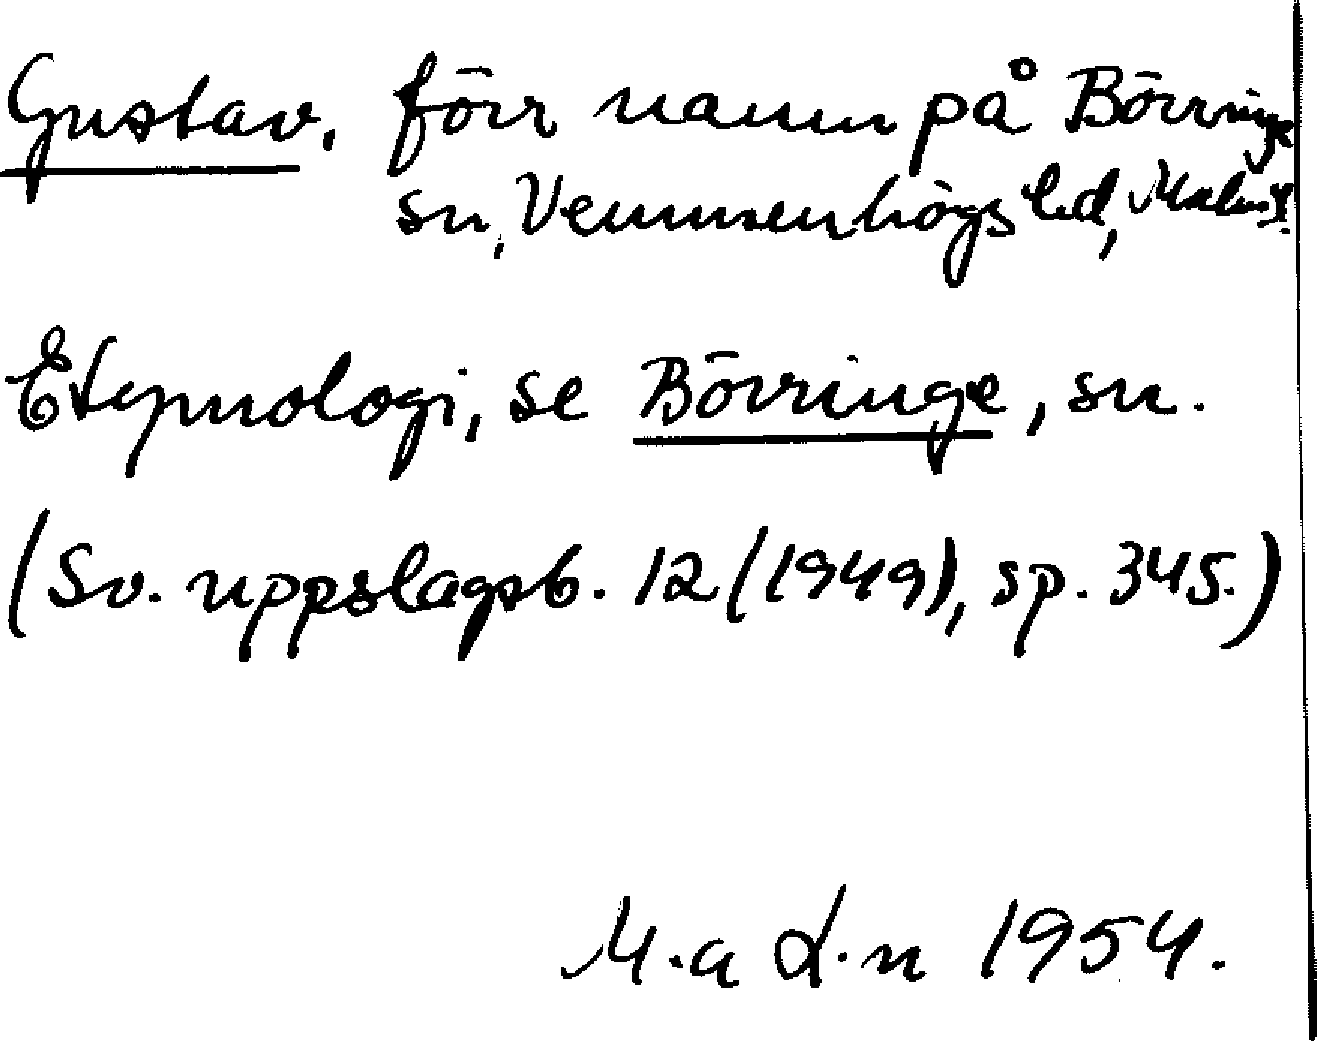 Gustav, förr namn på Börringe
sn, Vemmenhögs hd, Malm. l.
Etymologi, se Börringe, sn.
(Sv. uppslagsb. 12 (1949), sp. 345.)
M.a d.n 1954.